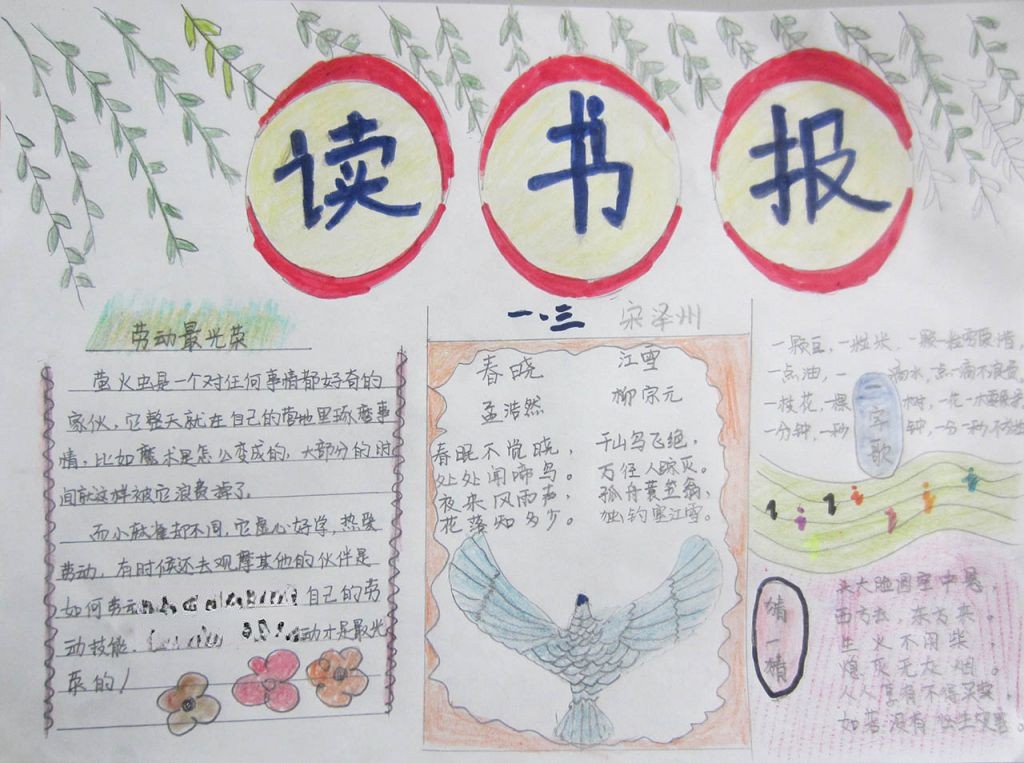 读书报
一、三 宋泽州
劳动最光荣
萤火虫是一个对任何事情都好奇的
家伙，它整天就在自己的营地里琢磨事
情，比如魔术是怎么变成的，大部分的时
间就这样被它浪费掉了。
而小 却不同，它虚心好学，热爱
劳动，有时候还去观摩其他的伙伴是
如何劳动 自己的劳
动技能。 动才是最光
荣的！
春晓
孟浩然
春眠不觉晓，
处处闻啼鸟。
夜来风雨声，
花落知多少。
江雪
柳宗元
千山鸟飞绝，
万径人踪灭。
孤舟蓑笠翁，
独钓寒江雪。
一字歌
一颗豆，一粒米，一颗一粒 要惜，
一点油，一滴水，点一滴不浪费，
一枝花，一棵树，一花一木要
一分钟，一秒钟，一分一秒，不
猜一猜
头大脸圆空中悬，
西方去，东方来。
生火不用柴，
熄灰无灰烟。
人人享有不得买卖，
如若没有 生灾害。